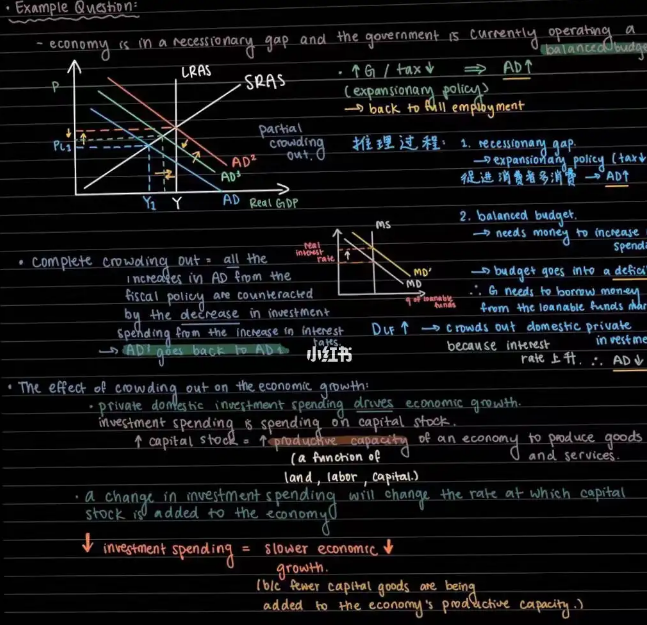 • Example Question:
- economy is in a recessionary gap and the government is currently operating a
balanced budge
P
LRAS
SRAS
PL1
AD²
AD³
AD
Y1
Y
Real GDP
partial
crowding
out.
• ↑G / tax↓ ⇒ AD↑
(expansionary policy)
→ back to full employment
推理过程:
1. recessionary gap.
→ expansionary policy (tax↓
促进消费者多消费 → AD↑
2. balanced budget.
→ needs money to increase
spendi
→ budget goes into a defici
∴ G needs to borrow money
from the loanable funds mar
DLF ↑ → crowds out domestic private
investme
because interest
rate 上升. ∴ AD↓
real
interest
rate
MS
MD'
MD
q of loanable
funds
• Complete crowding out = all the
increases in AD from the
fiscal policy are counteracted
by the decrease in investment
spending from the increase in interest
rates.
→ AD' goes back to AD1
小红书
• The effect of crowding out on the economic growth:
• private domestic investment spending drives economic growth.
investment spending is spending on capital stock.
↑ capital stock = ↑ productive capacity of an economy to produce goods
and services.
(a function of
land, labor, capital.)
• a change in investment spending will change the rate at which capital
stock is added to the economy
↓ investment spending = slower economic ↓
growth.
(b/c fewer capital goods are being
added to the economy's productive capacity.)